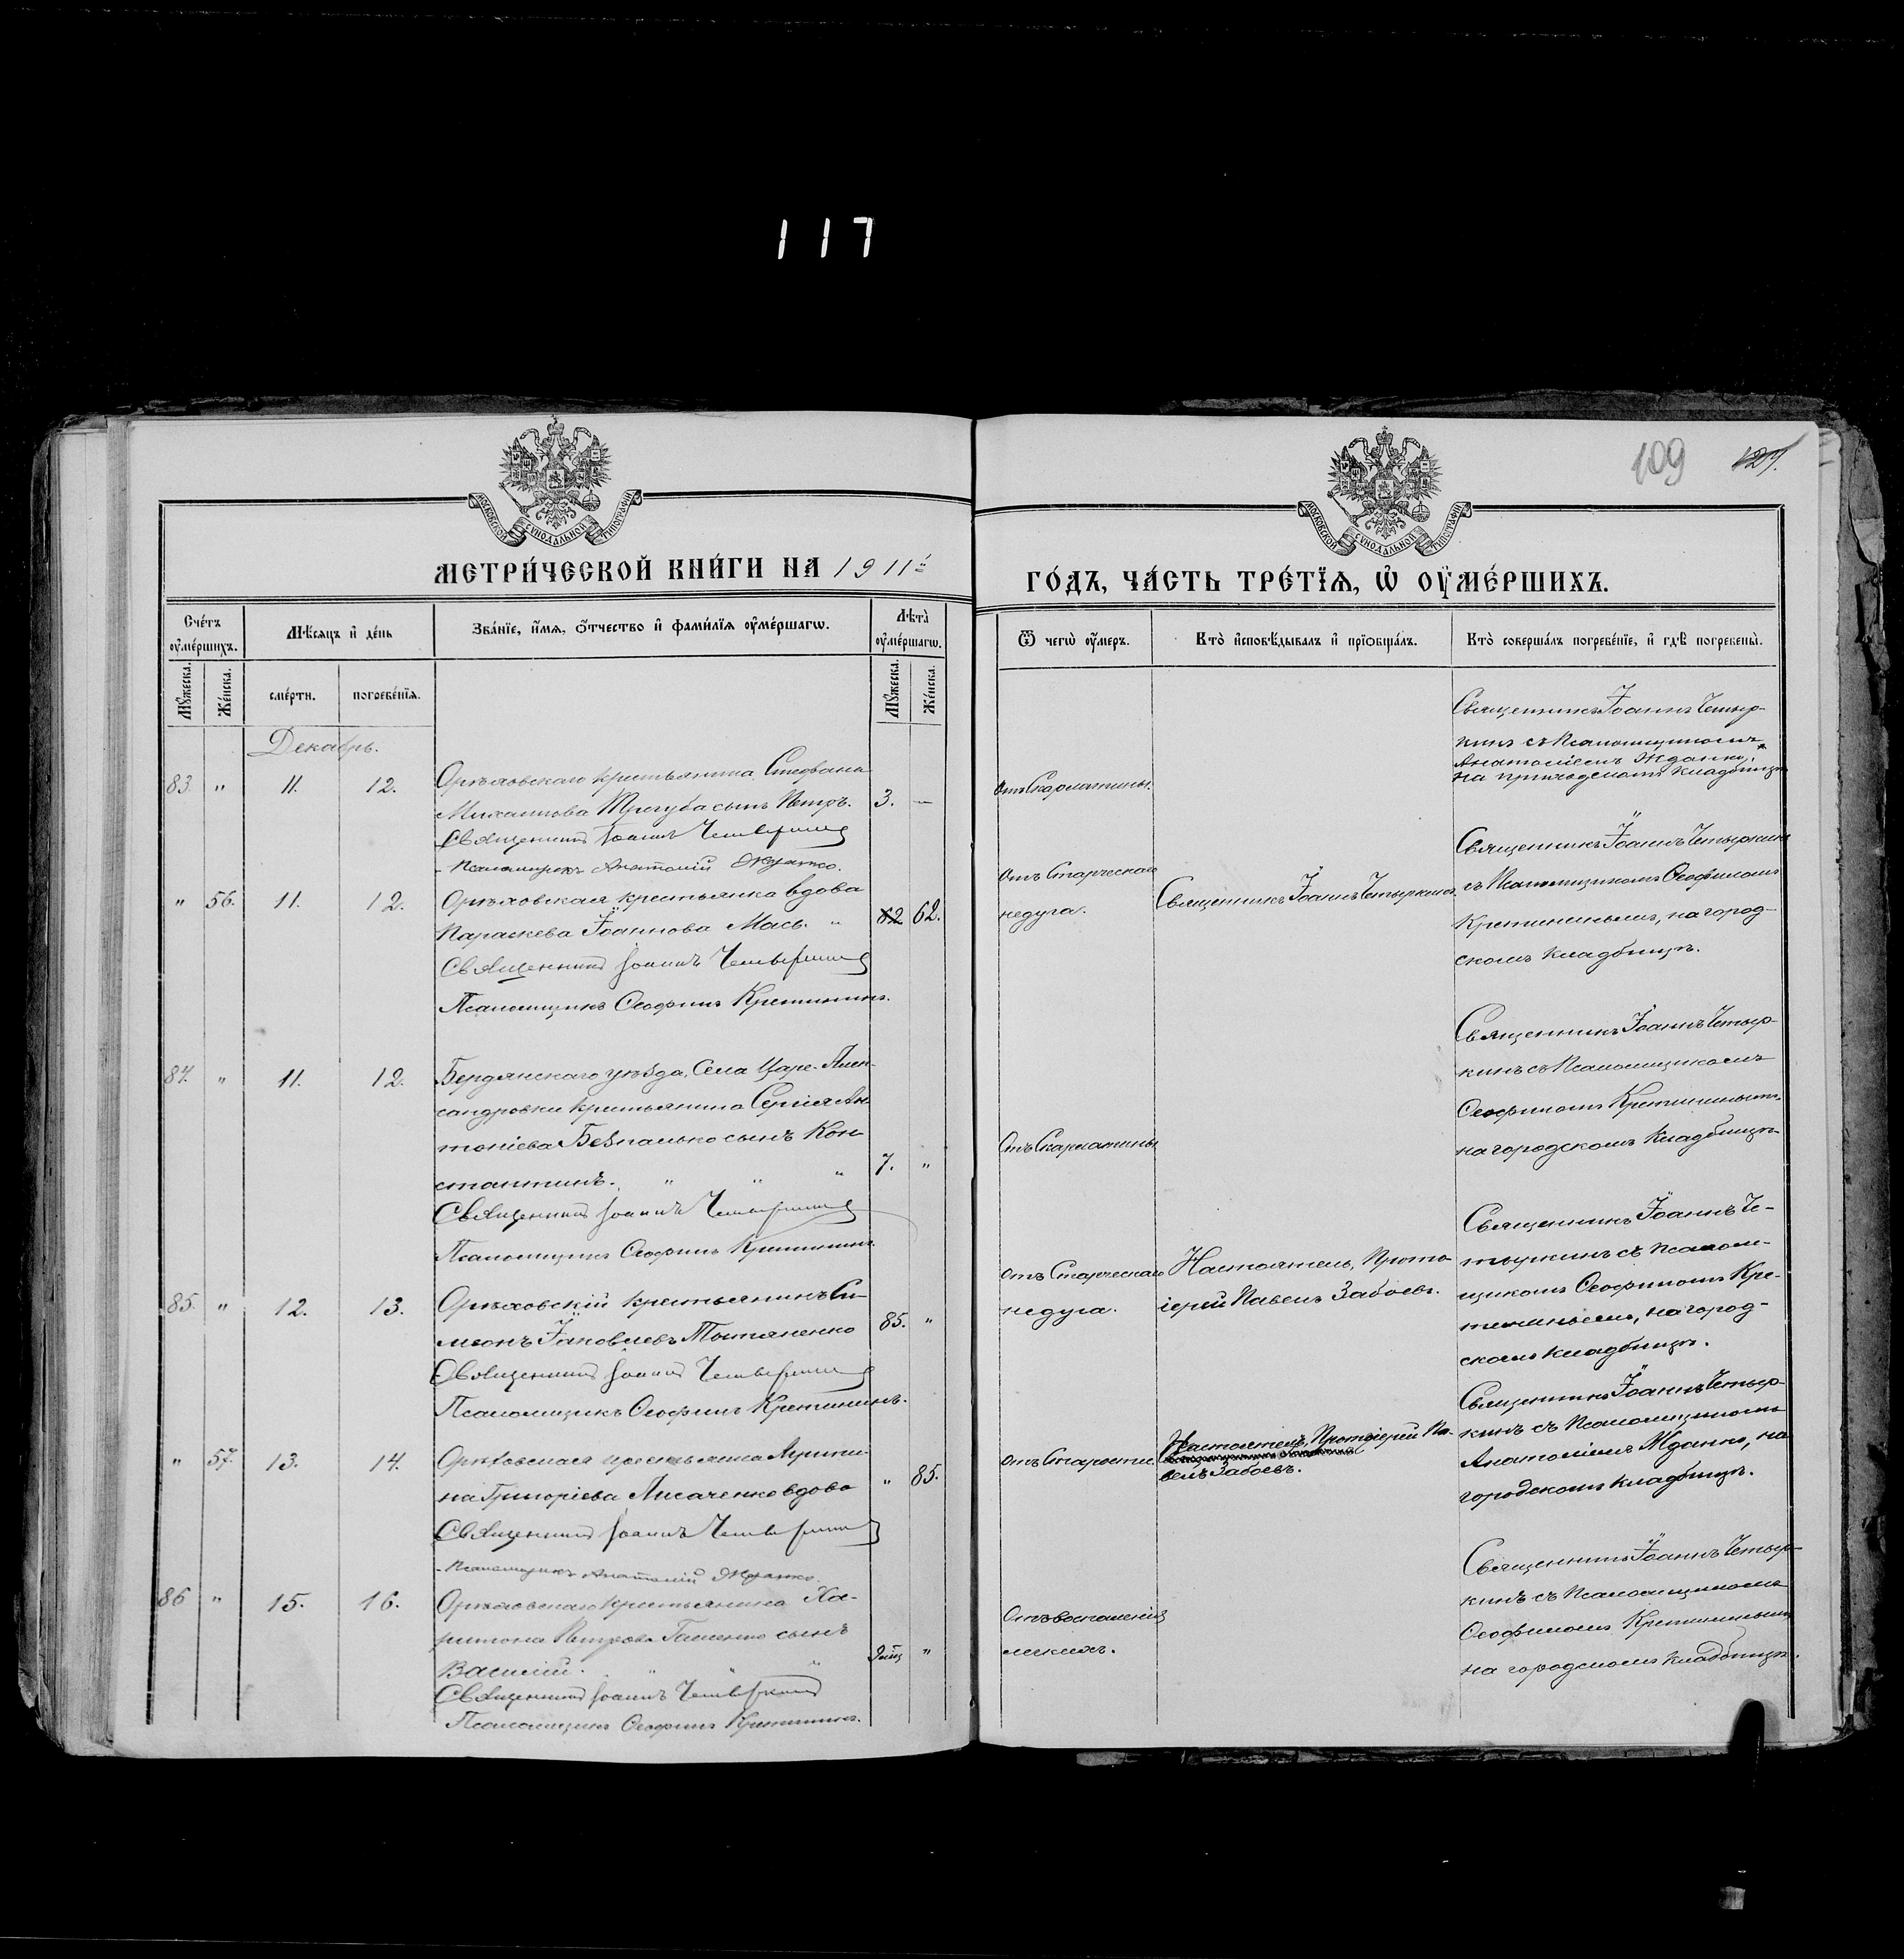 117
109
127.
МОСКОВСКОЙ СУНОДАЛЬНОЙ ТИПОГРАФІИ
МОСКОВСКОЙ СУНОДАЛЬНОЙ ТИПОГРАФІИ
МЕТРИ́ЧЕСКОЙ КНИ́ГИ НА 1911й
ГО́ДЪ, ЧА́СТЬ ТРЕ́ТЇѦ, Ѡ҆ ОУ҆МЕ́РШИХЪ.
Сче́тъ оу҆ме́ршихъ.
Мѣ́сѧцъ и҆ де́нь
Зва́нїе, и҆́мѧ, ѻ҆́тчество и҆ фами́лїѧ оу҆ме́ршагѡ.
Лѣ́та̀ оу҆ме́ршагѡ.
Ѿ чегѡ̀ оу҆́меръ.
Кто̀ и҆сповѣ́дывалъ и҆ прїѡбща́лъ.
Кто̀ соверша́лъ погребе́нїе, и҆ гдѣ̀ погребены̀.
Мꙋ́жеска.
Же́нска.
сме́рти.
погребе́нїѧ.
Мꙋ́жеска.
Же́нска.
Декабрь.
83. " 11. 12.
Орѣховскаго крестьянина Стефана
Михаилова Трегуба сынъ Петръ. 3. —
Священникъ Іоаннъ Четыркинъ
Псаломщикъ Анатолій Жданко.
Отъ Скарлатины.
Священникъ Іоаннъ Четыр-
кинъ съ Псаломщикомъ
Анатоліемъ Жданко,
на приходскомъ кладбищѣ
" 56. 11. 12.
Орѣховская крестьянка вдова
Параскева Іоаннова Мась. " 62 62.
Священникъ Іоаннъ Четыркинъ
Псаломщикъ Ѳеофилъ Кретининъ.
Отъ Старческаго
недуга.
Священникъ Іоаннъ Четыркинъ
Священникъ Іоаннъ Четыркинъ
съ Псаломщикомъ Ѳеофиломъ
Кретининымъ, на город-
скомъ кладбищѣ.
84. " 11. 12.
Бердянскаго уѣзда, Села Царе-Алек-
сандровки крестьянина Сергія Ан-
тоніева Безпалько сынъ Кон-
стантинъ. " " " 7. "
Священникъ Іоаннъ Четыркинъ
Псаломщикъ Ѳеофилъ Кретининъ.
Отъ Скарлатины
Священникъ Іоаннъ Четыр-
кинъ съ Псаломщикомъ
Ѳеофиломъ Кретининымъ
на городскомъ кладбищѣ
85. " 12. 13.
Орѣховскій крестьянинъ Си-
меонъ Іаковлевъ 85. "
Священникъ Іоаннъ Четыркинъ
Псаломщикъ Ѳеофилъ Кретининъ.
Отъ Старческаго
недуга.
Настоятель, Прото-
іерей Павелъ Забоевъ.
Священникъ Іоаннъ Че-
тыркинъ съ псалом-
щикомъ Ѳеофиломъ Кре-
тининымъ, на город-
скомъ кладбищѣ.
" 57. 13. 14.
Орѣховская крестьянка
Григоріева Лисаченко вдова " 85.
Священникъ Іоаннъ Четыркинъ
Псаломщикъ Анатолій Жданко.
Отъ Старости.
Настоятель, Протоіерей Па-
велъ Забоевъ.
Священникъ Іоаннъ Четыр-
кинъ съ Псаломщикомъ
Анатоліемъ Жданко, на
городскомъ кладбищѣ.
86 " 15. 16.
Орѣховскаго крестьянина Ха-
ритона Петрова сынъ
Василій. " " "
Священникъ Іоаннъ Четыркинъ
Псаломщикъ Ѳеофилъ Кретининъ.
Отъ воспаленія
легкихъ.
Священникъ Іоаннъ Четыр-
кинъ съ Псаломщикомъ
Ѳеофиломъ Кретининымъ
на городскомъ кладбищѣ.